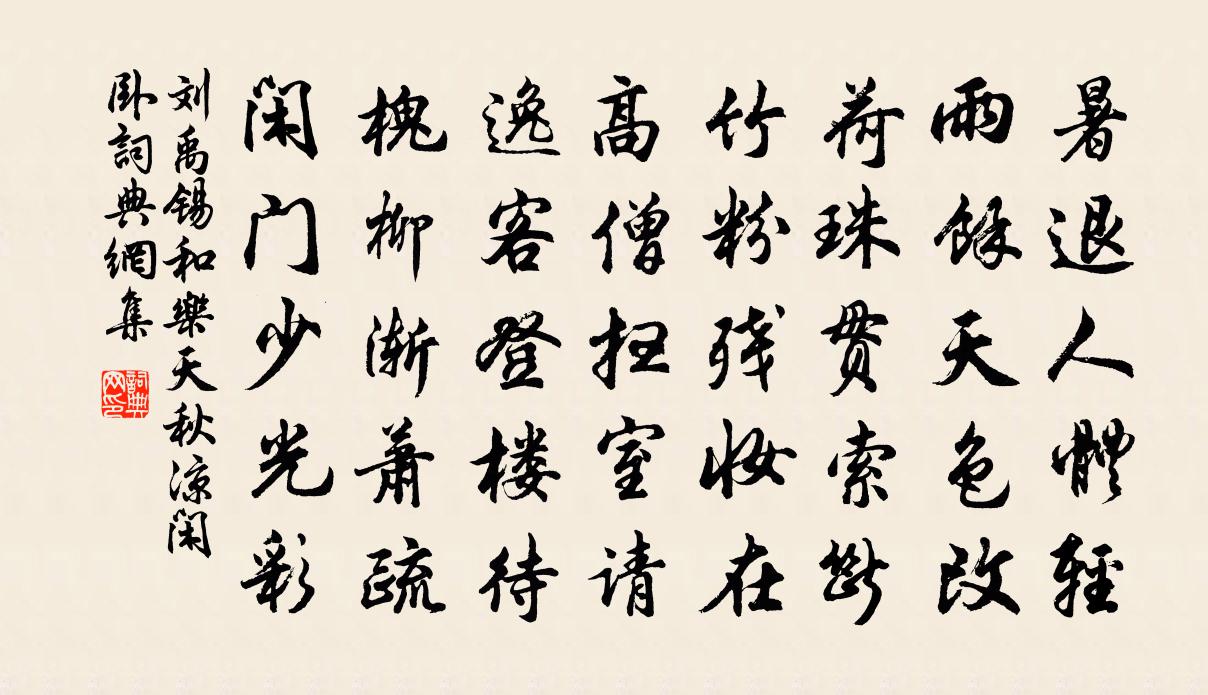 暑退人體輕
雨餘天色改
荷珠贯索斷
竹粉残妆在
高僧扫室请
逸客登楼待
槐柳渐萧疏
闲门少光彩
刘禹锡和樂天秋凉闲
卧詞典網集
詞典
网印